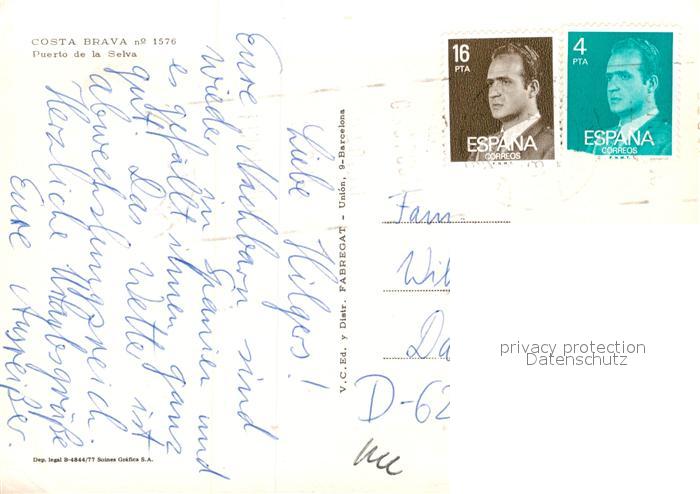 COSTA BRAVA nº 1576
Puerto de la Selva
Liebe Hilgers!
Eure Nachbarn sind
wieder in Spanien und
es gefällt ihnen ganz
gut. Das Wetter ist
abwechslungsreich.
Herzliche Urlaubsgrüße
Eure Ausreißer.
Dep. legal B-4844/77 Soines Gráfica S.A.
V.C.Ed. y Distr. FABREGAT - Unión, 9-Barcelona
16
PTA
ESPAÑA
CORREOS
F.N.M.T.
4
PTA
ESPAÑA
CORREOS
F.N.M.T.
Fam
Wil
Da
D-62
privacy protection
Datenschutz